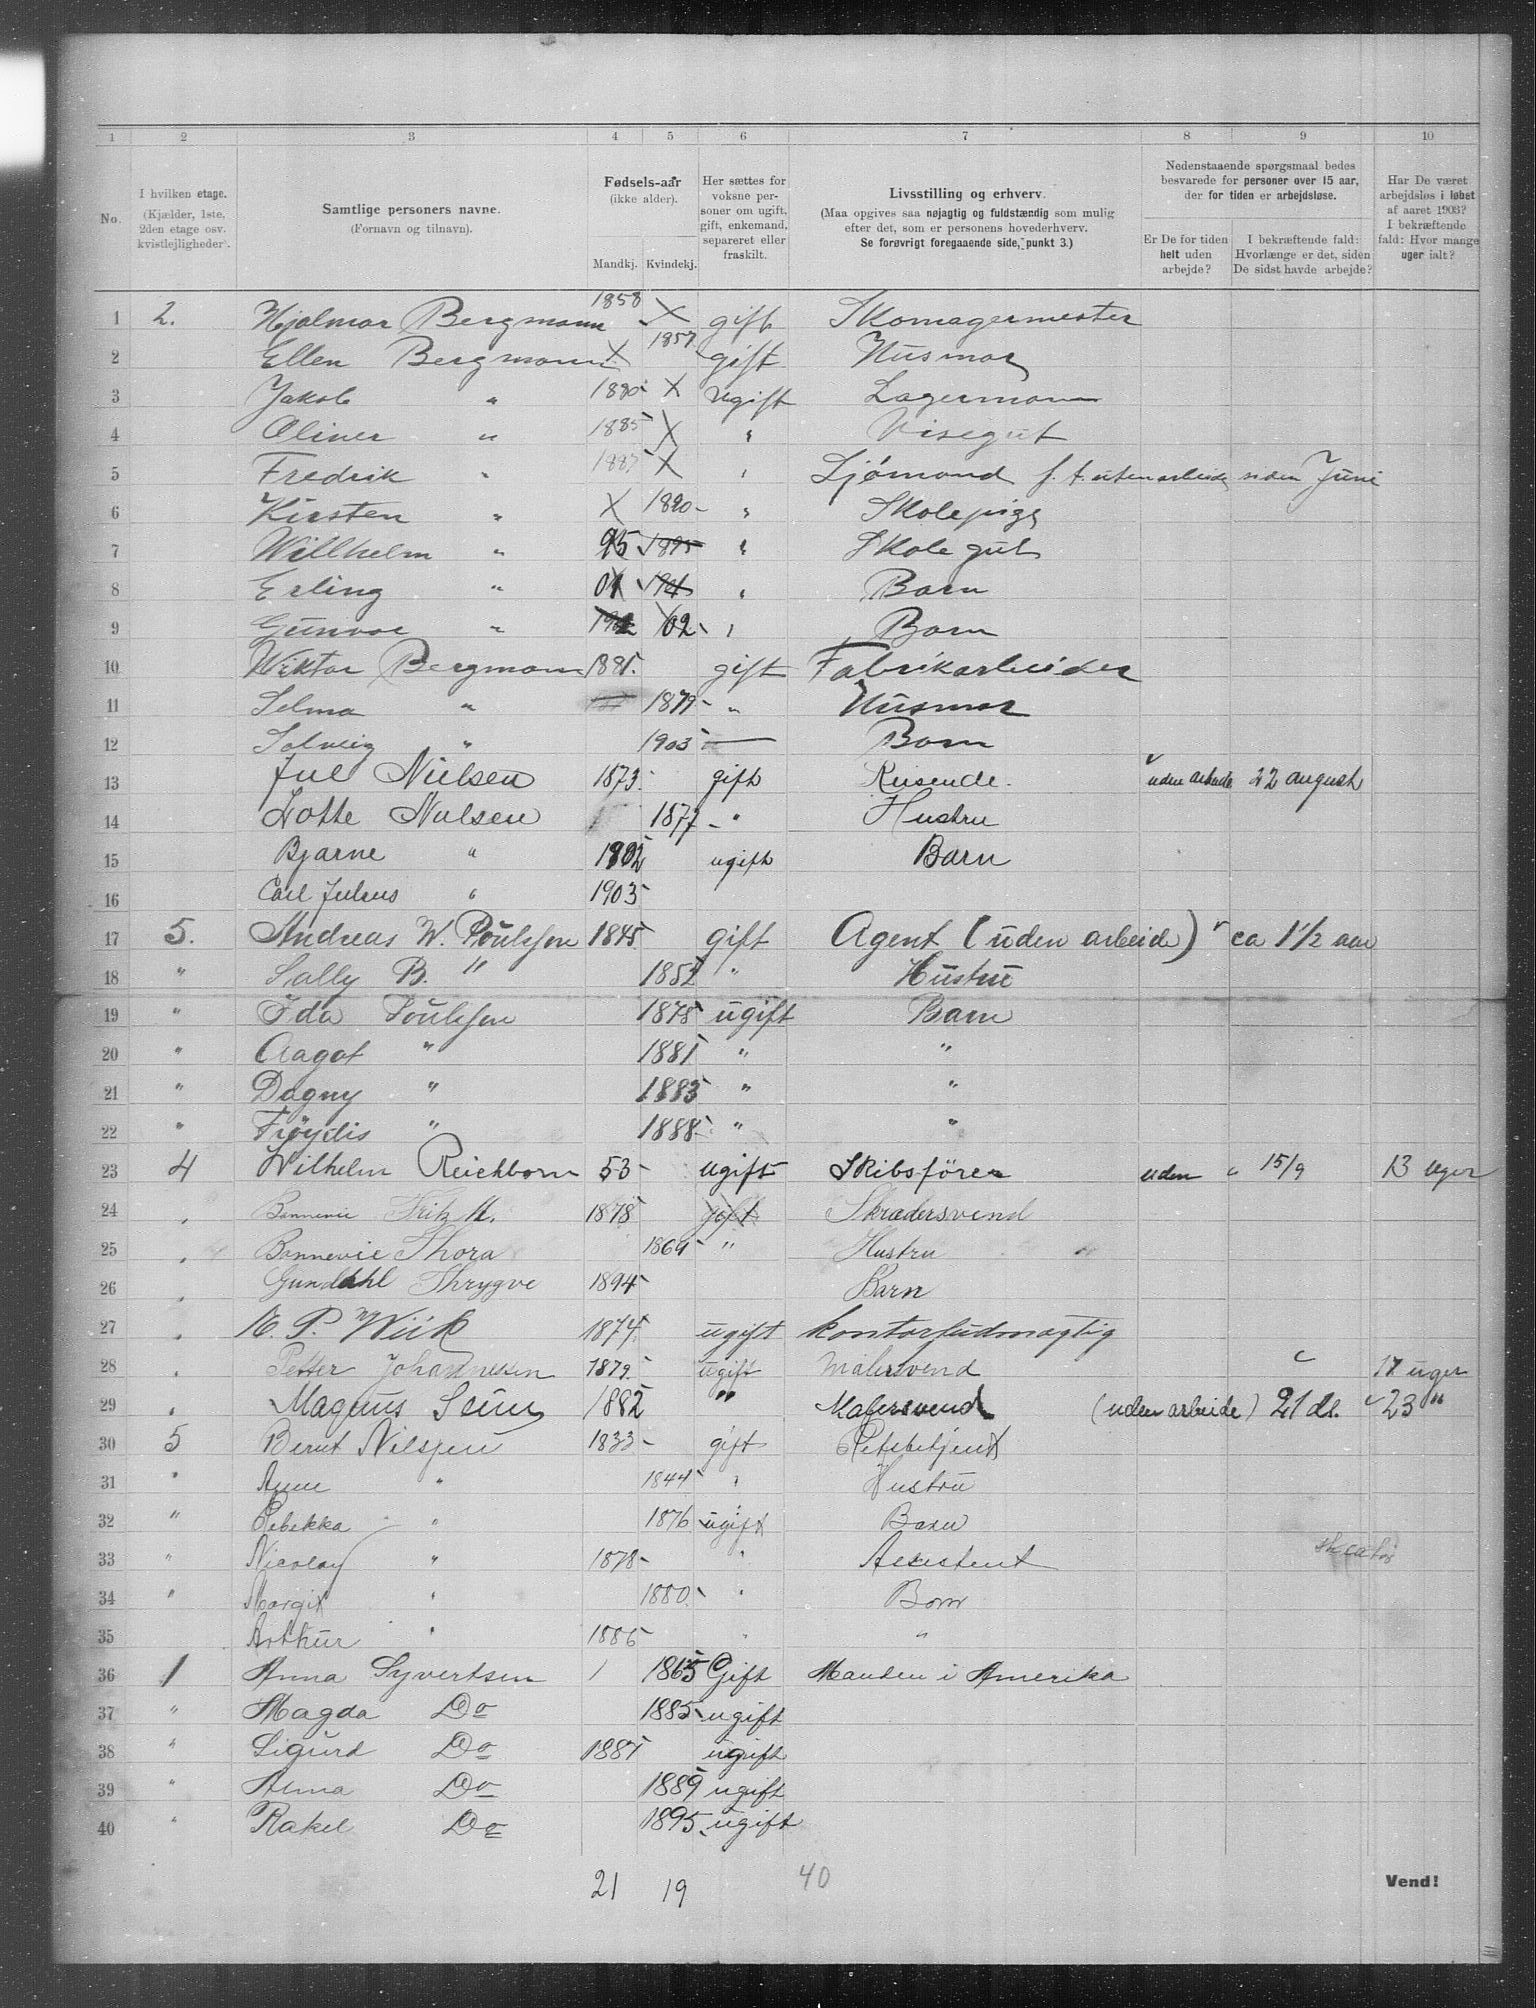 1 2 3 4 5 6 7 8 9 10
No. I hvilken etage. (Kjælder, 1ste, 2den etage osv. kvistleiligheder). Samtlige personers navne. (Fornavn og tilnavn). Fødsels-aar (ikke alder). Mandkj. Kvindekj. Her sættes for voksne personer om ugift, gift, enkemand, separeret eller fraskilt. Livsstilling og erhverv. (Maa opgives saa nøjagtig og fuldstændig som mulig efter det, som er personens hovederhverv. Se forøvrigt foregaaende side, punkt 3.) Nedenstaaende spørgsmaal bedes besvarede for personer over 15 aar, der for tiden er arbejdsløse. Er De for tiden helt uden arbejde? I bekræftende fald: Hvorlænge er det, siden De sidst havde arbejde? Har De været arbejdsløs i løbet af aaret 1903? I bekræftende fald: Hvor mange uger ialt?
1 2. Hjalmar Bergmann 1858 X gift Skomagermester
2 Ellen Bergmann X 1857 gift Husmor
3 Jakob " 1880 X Ugift Lagermann
4 Oliner " 1885 X " Visegut
5 Fredrik " 1887 X " Sjømand f. t. uten arbeide siden Juni
6 Kirsten " X 1890 " Skolepige
7 Willhelm " 95 1895 " Skolegut
8 Erling " 01 " Barn
9 Gunvor " 02 " Barn
10 Wiktor Bergmann 1881. gift Fabrikarbeider
11 Selma " 1879 " Husmor
12 Solveig " 1903 — Barn
13 Jul Nielsen 1873 gift Reisende. uden arbeide 22 august
14 Lotte Nielsen 1877 " Hustru
15 Bjarne " 1902 ugift Barn
16 Carl Julius " 1903
17 5. Andreas W. Poulsson 1845 gift Agent (uden arbeide) ca 1½ aar
18 " Sally B. " 1852 " Hustru
19 " Ida Poulsson 1878 ugift Barn
20 " Aagot " 1881 " "
21 " Dagny " 1883 " "
22 " Frøydis " 1888 " "
23 4 Wilhelm Reichborn 53 ugift Skibsfører uden " 15/9 13 uger
24 " Bonnevie Fritz M. 1878 gift Skrædersvend
25 " Bonnevie Thora 1869 " Hustru
26 " Gundahl Thrygve 1894 Barn
27 " K. P. Wiik 1874 ugift Kontorfuldmægtig
28 " Petter Johannesen 1879 ugift Malersvend 17 uger
29 " Magnus 1882 " Malersvend (uden arbeide) 21 ds. 23 "
30 5 Berut Nilssen 1833 gift Retsbetjent
31 " Anne " 1844 " Hustru
32 " Rebekka " 1876 ugift Barn
33 " Nicolay " 1878 " Assistent
34 " Margit " 1880 " Barn
35 Arthur " 1886 " "
36 1 Anna Syvertsen 1865 Gift Manden i Amerika
37 " Magda Do 1885 ugift
38 " Sigurd Do 1887 ugift
39 " Anna Do 1889 ugift
40 " Rakel Do 1895 ugift
21 19 40
Vend!